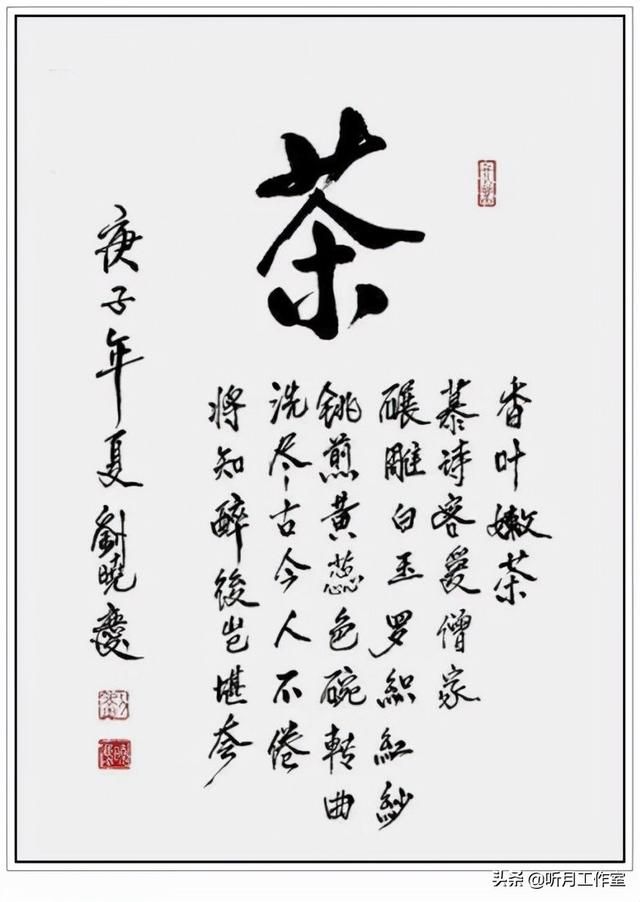 茶
香叶嫩茶
慕诗客爱僧家
碾雕白玉罗织紅紗
铫煎黄蕊色碗轉曲
洗尽古今人不倦
将知醉後岂堪夸
庚子年夏 劉曉慶
头条 @听月工作室